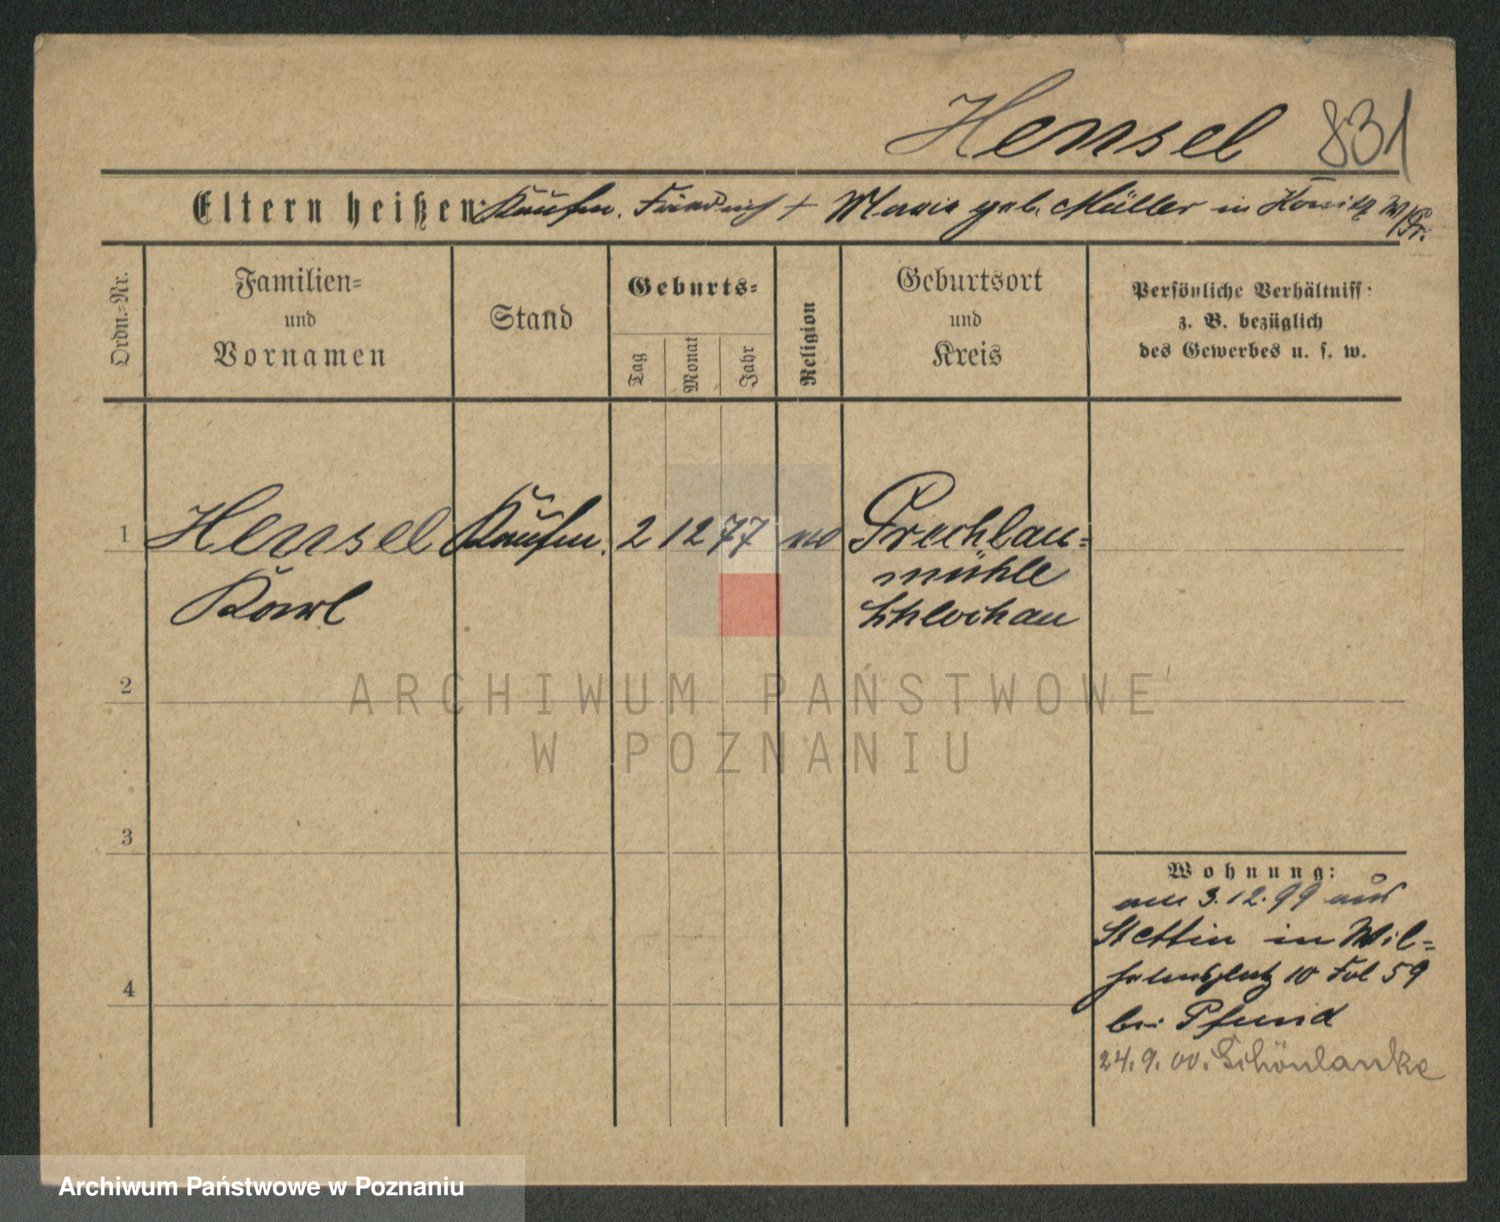 Hensel 831
Eltern heißen: Kaufm. Friedrich + Maria geb. Müller in Konitz W/Pr.
Ordn.-Nr.
Familien-
und
Vornamen
Stand
Geburts-
Tag
Monat
Jahr
Religion
Geburtsort
und
Kreis
Persönliche Verhältniss
z. B. bezüglich
des Gewerbes u. s. w.
1 Hensel Kaufm. 2 12 77 Prechlau-
Karl mühle
Schlochau
2
3
4
Wohnung:
am 3.12.99 aus
Stettin in Wil-
helmsplatz 10 Fol 59
bei Pfund
24.9.00. Schönlanke
ARCHIWUM PAŃSTWOWE
W POZNANIU
Archiwum Państwowe w Poznaniu